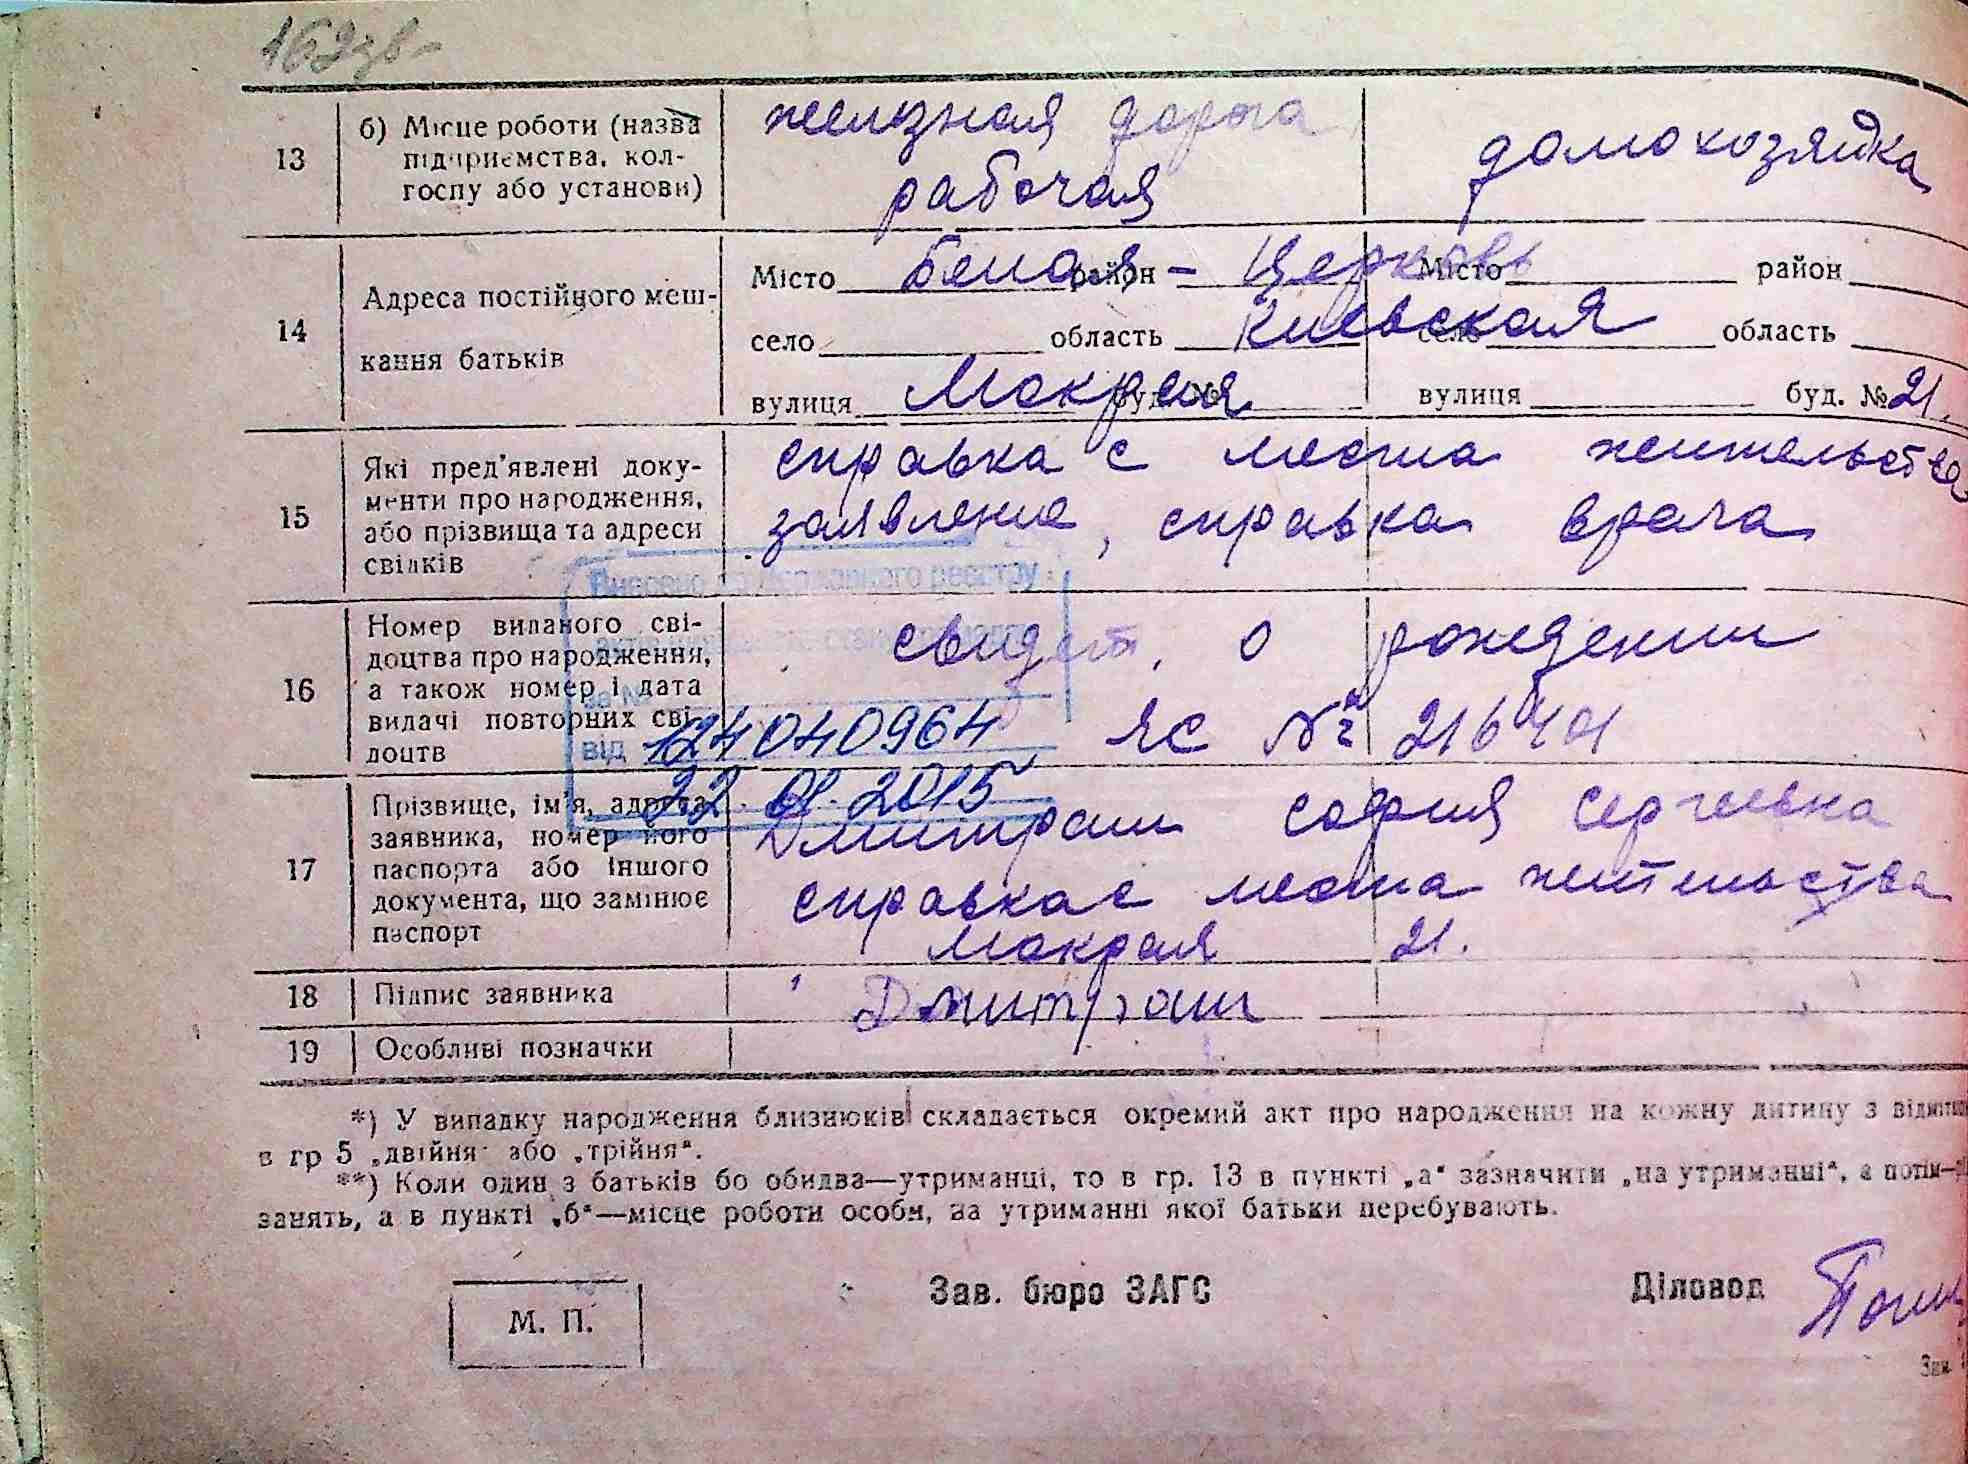 162зв-
13
б) Місце роботи (назва
підприємства, кол-
госпу або установи)
железная дорога
рабочая
домохозяйка
14
Адреса постійного меш-
кання батьків
Місто Белая - Церковь район Місто район
село область Киевская село область
вулиця Мокрая буд. № вулиця буд. № 21.
15
Які пред'явлені доку-
менти про народження,
або прізвища та адреси
свідків
справка с места жительства
заявление, справка врача
16
Номер виданого сві-
доцтва про народження,
а також номер і дата
видачі повторних сві-
доцтв
свидет. о рождении
ЯС №
Державного реєстру
за №
від 124040964
22.01.2015
17
Прізвище, ім'я, адреса
заявника, номер його
паспорта або іншого
документа, що замінює
паспорт
Дмитраш София Сергеевна
справка с места жительства
Мокрая 21.
18
Підпис заявника
Дмитраш
19
Особливі позначки
*) У випадку народження близнюків складається окремий акт про народження на кожну дитину з
в гр 5 „двійня" або „трійня".
**) Коли один з батьків бо обидва—утриманці, то в гр. 13 в пункті „а" зазначити „на утриманні", а потім—
занять, а в пункті „б"—місце роботи особи, на утриманні якої батьки перебувають.
М. П.
Зав. бюро ЗАГС
Діловод
Зам.